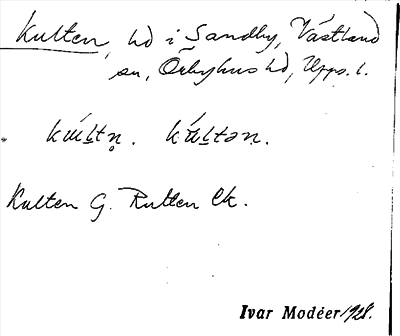 Kulten, hd i Sandby, Västland
sn, Örbyhus hd, Upps. l.
kúltn̥. kúltən.
Kulten G. Rulten Ek.
Ivar Modéer 1928.